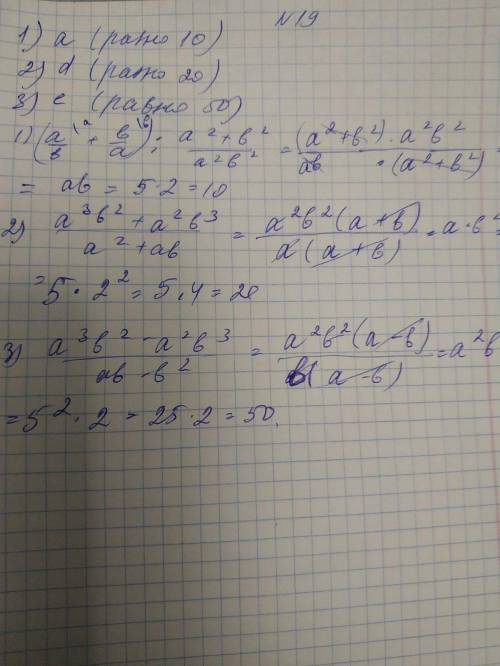 N19
1) a (равно 10)
2) d (равно 20)
3) e (равно 50)
1) (a/b \a + b/a \b) : a²+b²/a²b² = (a²+b²)·a²b²/ab·(a²+b²) =
= ab = 5·2=10
2) a³b²+a²b³/a²+ab = a²b²(a+b)/a(a+b) = a·b² =
= 5·2² = 5·4 = 20
3) a³b²-a²b³/ab-b² = a²b²(a-b)/b(a-b) = a²b
= 5²·2 = 25·2 = 50.